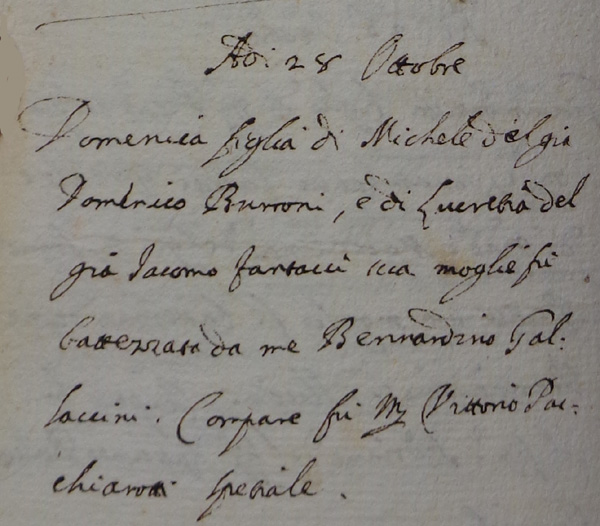 Adi 28 Ottobre
Domenica figlia di Michele del già
Domenico Burroni, e di Lucretia del
già Iacomo Fantacci sua moglie fù
battezzata da me Bernardino Gal-
laccini. Compare fù Mr Vittorio Pac-
chiarotti spetiale.